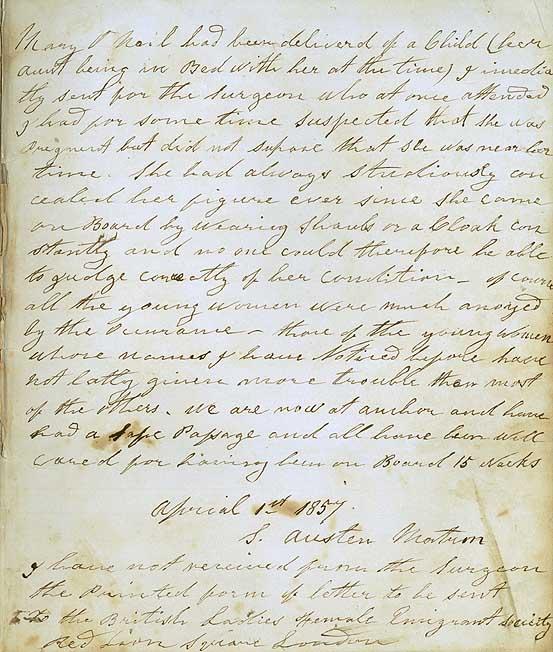 Mary O Neil had been deliverd of a Child (her
aunt being in Bed with her at the time) I imedia
tly sent for the Surgeon who at once attended
I had for some time suspected that she was
Pregnent but did not supose that she was near her
time. She had always studiously con
cealed her figure ever since she came
on Board by wearing Shauls or a Cloak con
stantly and no one could therefore be able
to gudge corectly of her condition - of course
all the young women were much anoyed
by the Occurance - those of the young women
whose names I have Noticed before have
not latly given more trouble then most
of the others. We are now at anchor and have
had a safe Passage and all have been well
cared for having been on Board 15 Weeks
Aprial 1st 1857.
S. Austen Matron
I have not received from the Surgeon
the Printed form of letter to be sent
to the British Ladies Female Emigrant Society
Red Lion Square London